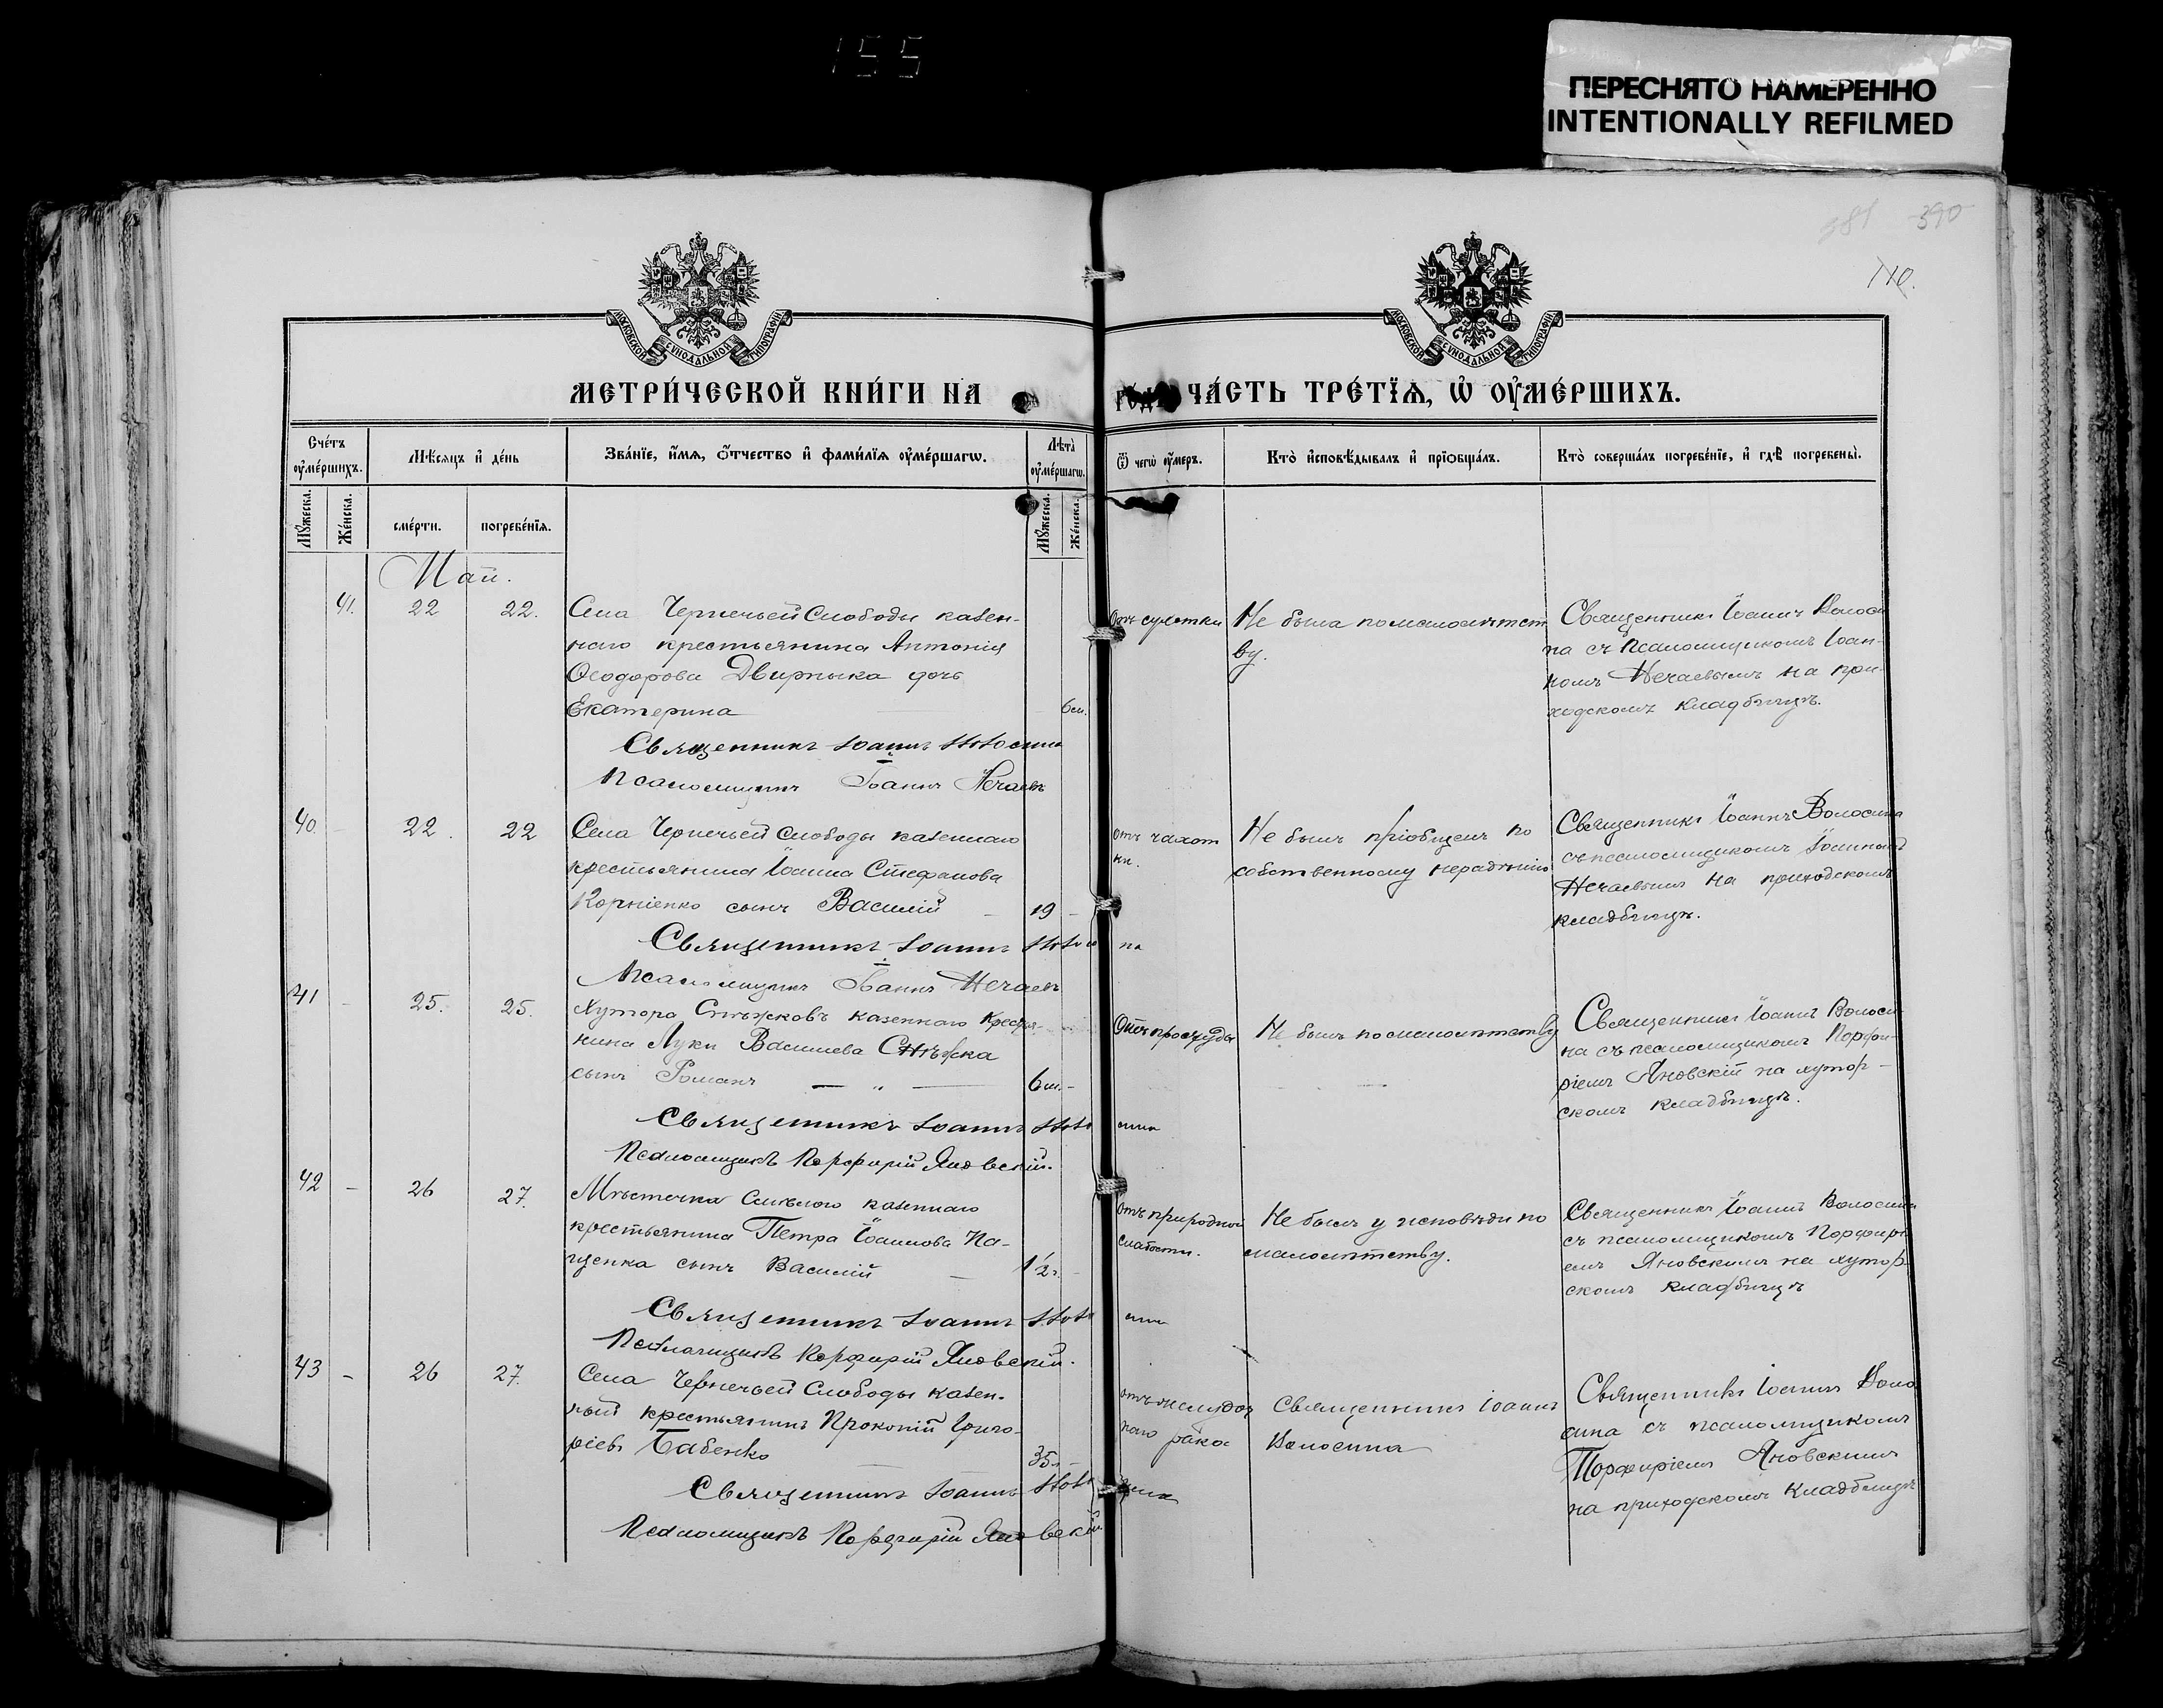 155
ПЕРЕСНЯТО НАМЕРЕННО
INTENTIONALLY REFILMED
390
110.
МОСКОВСКОЙ СѴНОДАЛЬНОЙ ТИПОГРАФІИ
МОСКОВСКОЙ СѴНОДАЛЬНОЙ ТИПОГРАФІИ
МЕТРИ́ЧЕСКОЙ КНИ́ГИ НА
ЧА́СТЬ ТРЕ́ТЇѦ, Ѡ҆ ОУ҆МЕ́РШИХЪ.
Сче́тъ оу҆ме́ршихъ.
Мѣ́сѧцъ и҆ де́нь
Зва́нїе, и҆́мѧ, ѻ҆́тчество и҆ фами́лїѧ оу҆ме́ршагѡ.
Лѣ́та оу҆ме́ршагѡ.
Ѿ чегѡ̀ оу҆́меръ.
Кто̀ и҆сповѣ́дывалъ и҆ прїѡбща́лъ.
Кто̀ соверша́лъ погребе́нїе, и҆ гдѣ̀ погребены̀.
Мꙋ́жеска.
Же́нска.
сме́рти.
погребе́нїѧ.
Мꙋ́жеска.
Же́нска.
Май.
41.
22
22.
Села Чернечьей Слободы казен-
наго крестьянина Антонія
Ѳеодорова Двирныка дочь
Екатерина
6 м.
Священникъ Іоаннъ Волосина
Псаломщикъ Іоаннъ Нечаевъ
Отъ сухотки
Не была по малолѣтст
ву.
Священникъ Іоаннъ Волоси
на съ псаломщикомъ Іоан-
номъ Нечаевымъ на при-
ходскомъ кладбищѣ.
40.
22.
22
Села Чернечьей Слободы казеннаго
крестьянина Іоанна Стефанова
Корніенко сынъ Василій
19
Священникъ Іоаннъ Волоси
на
Псаломщикъ Іоаннъ Нечаевъ
отъ чахот
ки.
Не былъ пріобщенъ по
собственному нерадѣнію
Священникъ Іоаннъ Волосина
съ псаломщикомъ Іоанномъ
Нечаевымъ на приходскомъ
кладбищѣ.
41
25.
25.
Хутора Снѣжковъ казеннаго крестья-
нина Луки Васильева Снѣжка
сынъ Романъ
6 м.
Священникъ Іоаннъ Воло
сина
Псаломщикъ Порфирій Яновскій.
Отъ простуды
Не былъ по малолѣтству
Священникъ Іоаннъ Волоси-
на съ псаломщикомъ Порфи-
ріемъ Яновскій на хутор-
скомъ кладбищѣ.
42
26
27.
Мѣстечка Смѣлого казеннаго
крестьянина Петра Іоаннова Па-
щенка сынъ Василій
1/2 г.
Священникъ Іоаннъ Воло
сина
Псаломщикъ Порфирій Яновскій.
Отъ природной
слабости.
Не былъ у исповѣди по
малолѣтству.
Священникъ Іоаннъ Волосина
съ псаломщикомъ Порфирі
емъ Яновскимъ на хутор
скомъ кладбищѣ
43
26
27.
Села Чернечьей Слободы казен-
ный крестьянинъ Прокопій Григо-
ріевъ Бабенко
35 л.
Священникъ Іоаннъ Воло
сина
Псаломщикъ Порфирій Яновскій
отъ желудоч
наго рака
Священникъ Іоаннъ
Волосина
Священникъ Іоаннъ Воло
сина съ псаломщикомъ
Порфиріемъ Яновскимъ
на приходскомъ кладбищѣ